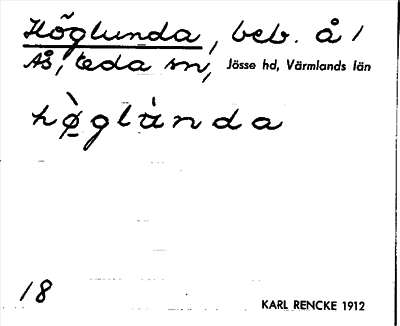 Höglunda, beb. å /
Ås, Eda sn, Jösse hd, Värmlands län
hø̀glùnda
18
KARL RENCKE 1912